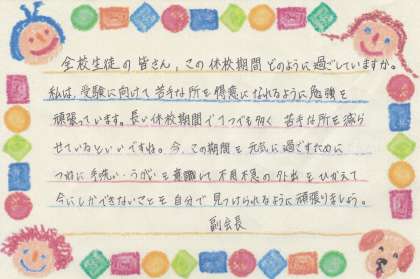 全校生徒の皆さん、この休校期間どのように過ごしていますか。
私は、受験に向けて苦手な所を得意になれるように勉強を
頑張っています。長い休校期間で1つでも多く苦手な所を減ら
せているといいですね。今、この期間を元気に過ごすために
つねに手洗い・うがいを意識して不用不急の外出をひかえて
今にしかできないことを自分で見つけられるように頑張りましょう。
副会長